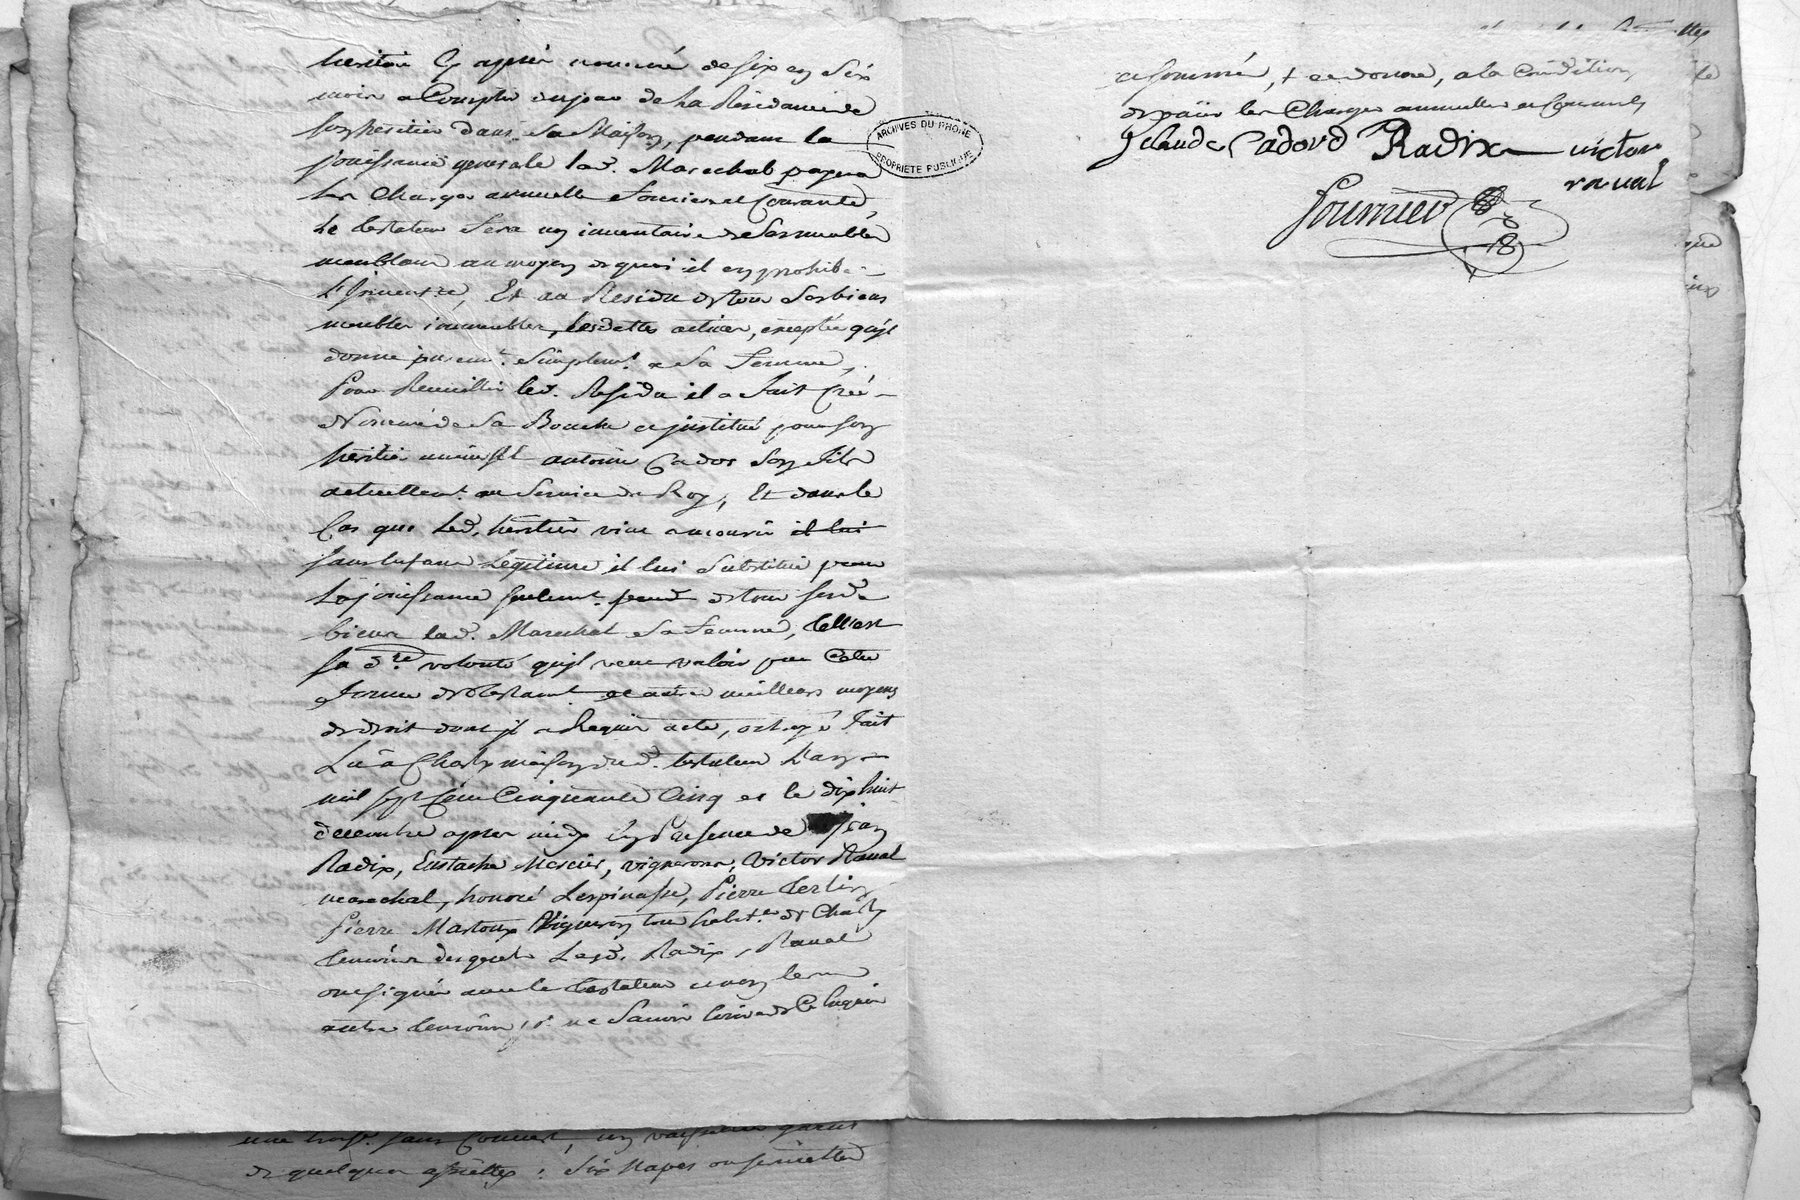 heritier cy apres nommé de six en six
mois a Compter du jour de la Residance de
son heritier dans sa Maison, pendant la
jouissance generale lad. Marechal payera
les Charges annuelles foncieres et Courantes,
Le testateur fera un inventaire de ses meubles
meublans au moyen de quoi il en prohibe
L'Inventre, Et au Residu de tous ses biens
meubles immeubles, ses dettes actives, exceptés qu'il
donne puremt. simplemt. a sa femme,
Pour Recueillir led. Residu il a fait Créé
Nommé de sa Bouche et institué pour son
heritier universel antoine Cados son fils
actuellemt. au Service du Roy, Et dans le
Cas que led. heritier vint a mourir il lui
sans enfans Legitimes il lui substitue pour
La jouissance seulemt. de tous sesd.
biens lad. Marechal sa femme, telle est
sa dre volonté qu'il veut valoir par Cette
forme de testamt. et autres meilleurs moyens
de droit dont il a Requis acte, octroyé fait
Lu à Charly maison dud. testateur L'an
mil sept Cent Cinquante Cinq et le dix huit
decembre apres midy En presence de Jean
Radix, Eustache Mercier, vignerons, Victor Raval
marechal, honoré Lespinasse, Pierre
Pierre Vigneron tous habits. de Charly
temoins desquels Lesd. Radix, Raval
ont signés avec le testateur et non les
autres temoins pr. ne savoir ecrire de Ce Enquis
ARCHIVES DU RHONE
PROPRIÉTÉ PUBLIQUE
et sommés, + et donne, a la Condition
de païer les Charges annuelles et Courantes
Claude Cadord Radix victor
raval
fournier
une sans Couvert, un vaisselier garni
de quelques assiettes: six Napes ou serviettes